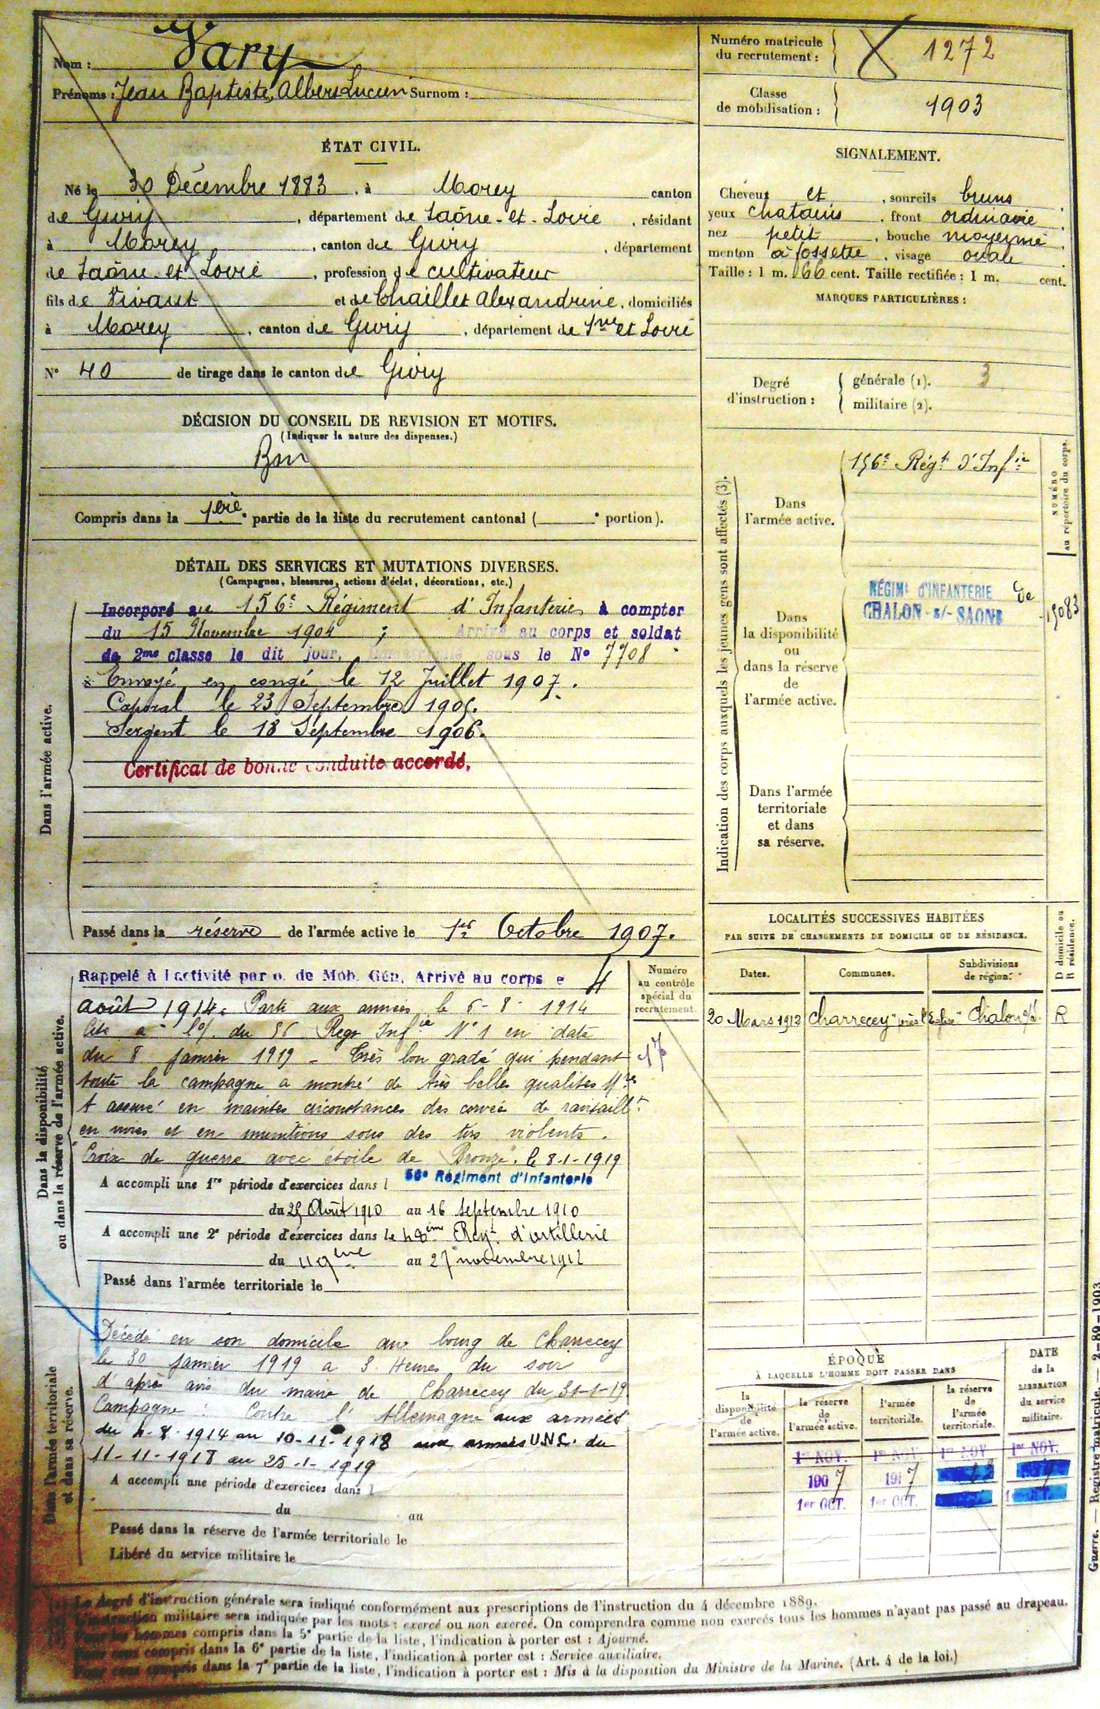 Nom : Vary
Prénoms : Jean Baptiste, Albert Lucien Surnom :
Numéro matricule du recrutement : 1272
Classe de mobilisation : 1903
ÉTAT CIVIL.
Né le 30 Décembre 1883, à Morey canton
de Givry, département de Saône-et-Loire, résidant
à Morey, canton de Givry, département
de Saône-et-Loire, profession de cultivateur
fils de Vivant et de Chaillet Alexandrine, domiciliés
à Morey, canton de Givry, département de Sne et Loire
N° 40 de tirage dans le canton de Givry
SIGNALEMENT.
Cheveux et, sourcils bruns
yeux chatains, front ordinaire
nez petit, bouche moyenne,
menton à fossette, visage ovale
Taille : 1 m. 66 cent. Taille rectifiée : 1 m. cent.
MARQUES PARTICULIÈRES :
Degré d'instruction :
générale (1). 3
militaire (2).
DÉCISION DU CONSEIL DE REVISION ET MOTIFS.
(Indiquer la nature des dispenses.)
Bon
Compris dans la 1ère partie de la liste du recrutement cantonal ( portion).
DÉTAIL DES SERVICES ET MUTATIONS DIVERSES.
(Campagnes, blessures, actions d'éclat, décorations, etc.)
Dans l'armée active.
Incorporé au 156e Régiment d'Infanterie à compter
du 15 Novembre 1904 ; Arrivé au corps et soldat
de 2me classe le dit jour, sous le N° 7708
Envoyé en congé le 12 Juillet 1907.
Caporal le 23 Septembre 1905.
Sergent le 18 Septembre 1906.
Certificat de bonne conduite accordé,
Passé dans la réserve de l'armée active le 1er Octobre 1907.
Indication des corps auxquels les jeunes gens sont affectés (3).
NUMÉRO au répertoire du corps.
Dans l'armée active.
156e Régt d'Infie
Dans la disponibilité ou dans la réserve de l'armée active.
RÉGIMt D'INFANTERIE de
CHALON-s/-SAONE
15083
Dans l'armée territoriale et dans sa réserve.
LOCALITÉS SUCCESSIVES HABITÉES
PAR SUITE DE CHANGEMENTS DE DOMICILE OU DE RÉSIDENCE.
Dates.
Communes.
Subdivisions de région.
D domicile ou R résidence.
20 Mars 1913 Charrecey "près l'Eglise" Chalon s/S. R
Dans la disponibilité ou dans la réserve de l'armée active.
Numéro au contrôle spécial du recrutement
Rappelé à l'activité par o. de Mob. Gén. Arrivé au corps le 4
août 1914. Parti aux armées le 6-8-1914
Cité à l'o/. du 56 Regt Infie N° 1 en date
du 8 janvier 1919 - Très bon gradé qui pendant
toute la campagne a montré de très belles qualités Mres
A assuré en maintes circonstances des corvées de ravitaillt
en vivres et en munitions sous des tirs violents.
Croix de guerre avec étoile de Bronze. le 8-1-1919
A accompli une 1re période d'exercices dans l 56e Régiment d'Infanterie
du 25 Août 1910 au 16 septembre 1910
A accompli une 2e période d'exercices dans le 48ème Regt. d'artillerie
du au 27 novembre 1912
Passé dans l'armée territoriale le
Dans l'armée territoriale et dans sa réserve.
Décédé en son domicile au bourg de Charrecey
le 30 janvier 1919 à 3 Heures du soir
d'après avis du maire de Charrecey du 31-1-19.
Campagne : Contre l'Allemagne aux armées
du 4-8-1914 au 10-11-1918 aux armées U.N.C. du
11-11-1918 au 25-1-1919
A accompli une période d'exercices dans l
du au
Passé dans la réserve de l'armée territoriale le
Libéré du service militaire le
ÉPOQUE
À LAQUELLE L'HOMME DOIT PASSER DANS
la disponibilité de l'armée active.
la réserve de l'armée active.
l'armée territoriale.
la réserve de l'armée territoriale.
DATE de la LIBÉRATION du service militaire.
1er NOV. 1er NOV. 1er NOV. 1er NOV.
1907 1917
1er OCT. 1er OCT.
Le degré d'instruction générale sera indiqué conformément aux prescriptions de l'instruction du 4 décembre 1889.
L'instruction militaire sera indiquée par les mots : exercé ou non exercé. On comprendra comme non exercés tous les hommes n'ayant pas passé au drapeau.
Pour les hommes compris dans la 5e partie de la liste, l'indication à porter est : Ajourné.
Pour ceux compris dans la 6e partie de la liste, l'indication à porter est : Service auxiliaire.
Pour ceux compris dans la 7e partie de la liste, l'indication à porter est : Mis à la disposition du Ministre de la Marine. (Art. 4 de la loi.)
Guerre. — Registre matricule. — 2-89-1903